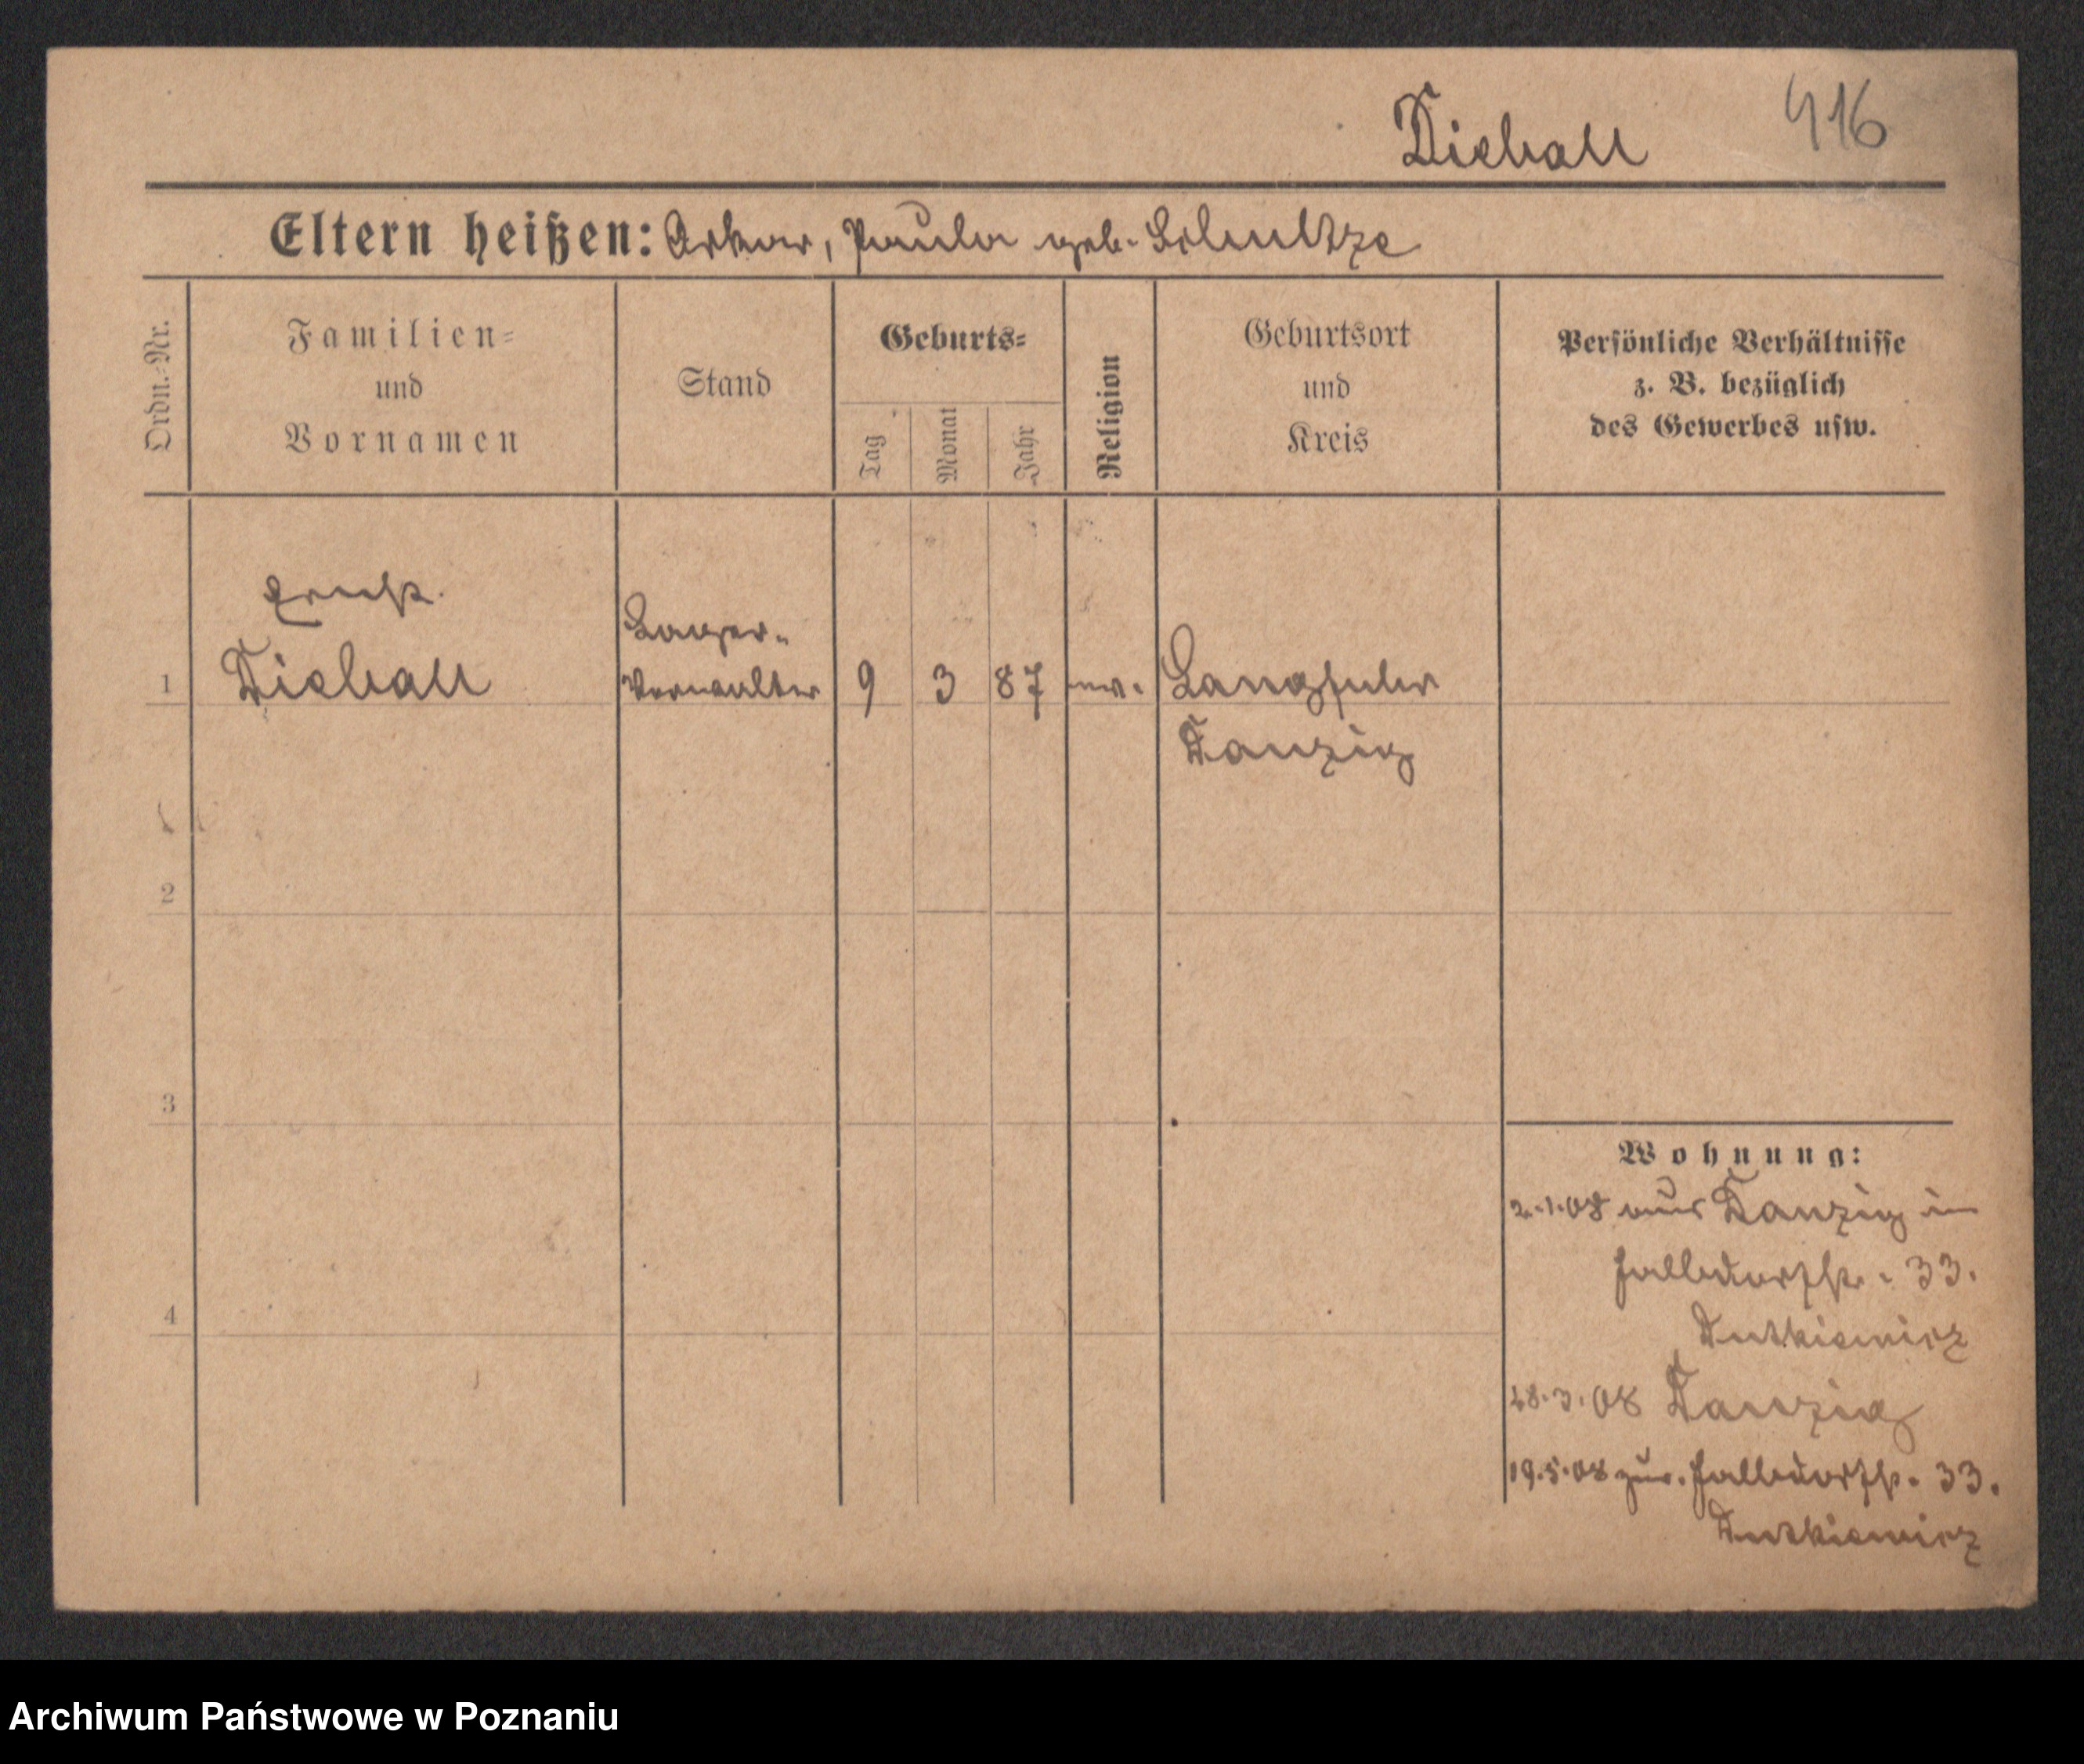 Diehall 416
Eltern heißen: Oskar, Paula geb. Schultze
Ordn.-Nr.
Familien-
und
Vornamen
Stand
Geburts-
Tag
Monat
Jahr
Religion
Geburtsort
und
Kreis
Persönliche Verhältnisse
z. B. bezüglich
des Gewerbes usw.
Ernst
Lager-
1 Diehall Verwalter 9 3 87 ev. Langfuhr
Danzig
2
3
Wohnung:
2.1.08 aus Danzig in
Halbdorfstr. 33.
4
Dutkiewicz
28.3.08 Danzig
19.5.08 zur. Halbdorfstr. 33.
Dutkiewicz
Archiwum Państwowe w Poznaniu